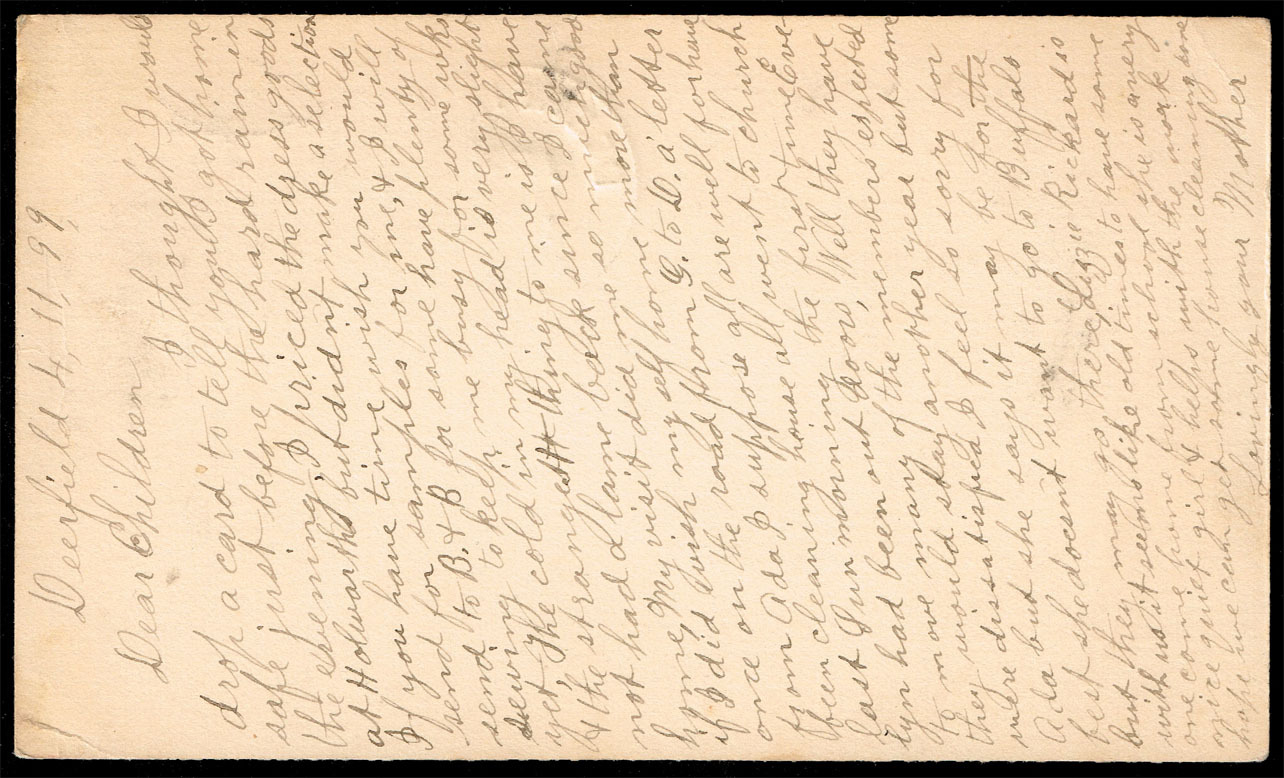 Deerfield 4, 11, 99,
Dear Children
I thought I would
drop a card to tell you I got home
safe just before the hard rain in
the evening, I priced the dress goods
at Howarths but didn't make a selection
If you have time wish you would
send for samples for me, & I will
send to B. & B for some have plenty of
sewing to keep me busy for some wks
yet, The cold in my head is very slight
& the strangest thing to me is I have
not had a lame back since I came
home My visit did me so much good
if I did wish my self home more than
once on the road from G. to D. a letter
from Ada I suppose all are well for have
been cleaning house all went to church
last Sun morning the first time Eve-
lyn had been out doors, Well they have
to move many of the members expected
they would stay another year but some
were dissatisfied I feel so sorry for
Ada but she says it may be for the
best she doesn't want to go to Buffalo
but they may go there, Lizzie Rickards is
with us it seems like old times to have some
one come home from school she is a very
nice quiet girl & helps with the work I
hope we can get some house cleaning done
Lovingly your Mother